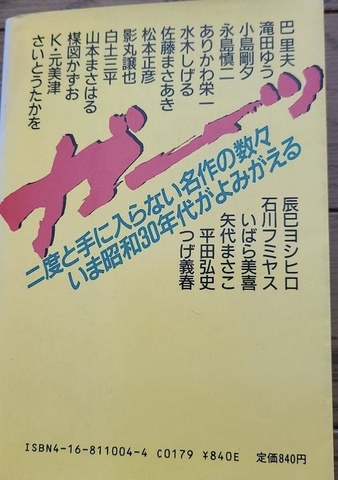 巴里夫
滝田ゆう
小島剛夕
永島慎二
ありかわ栄一
水木しげる
佐藤まさあき
松本正彦
影丸譲也
白土三平
山本まさはる
楳図かずお
K・元美津
さいとうたかを
二度と手に入らない名作の数々
いま昭和30年代がよみがえる
辰巳ヨシヒロ
石川フミヤス
いばら美喜
矢代まさこ
平田弘史
つげ義春
ISBN4-16-811004-4 C0179 ¥840E 定価840円